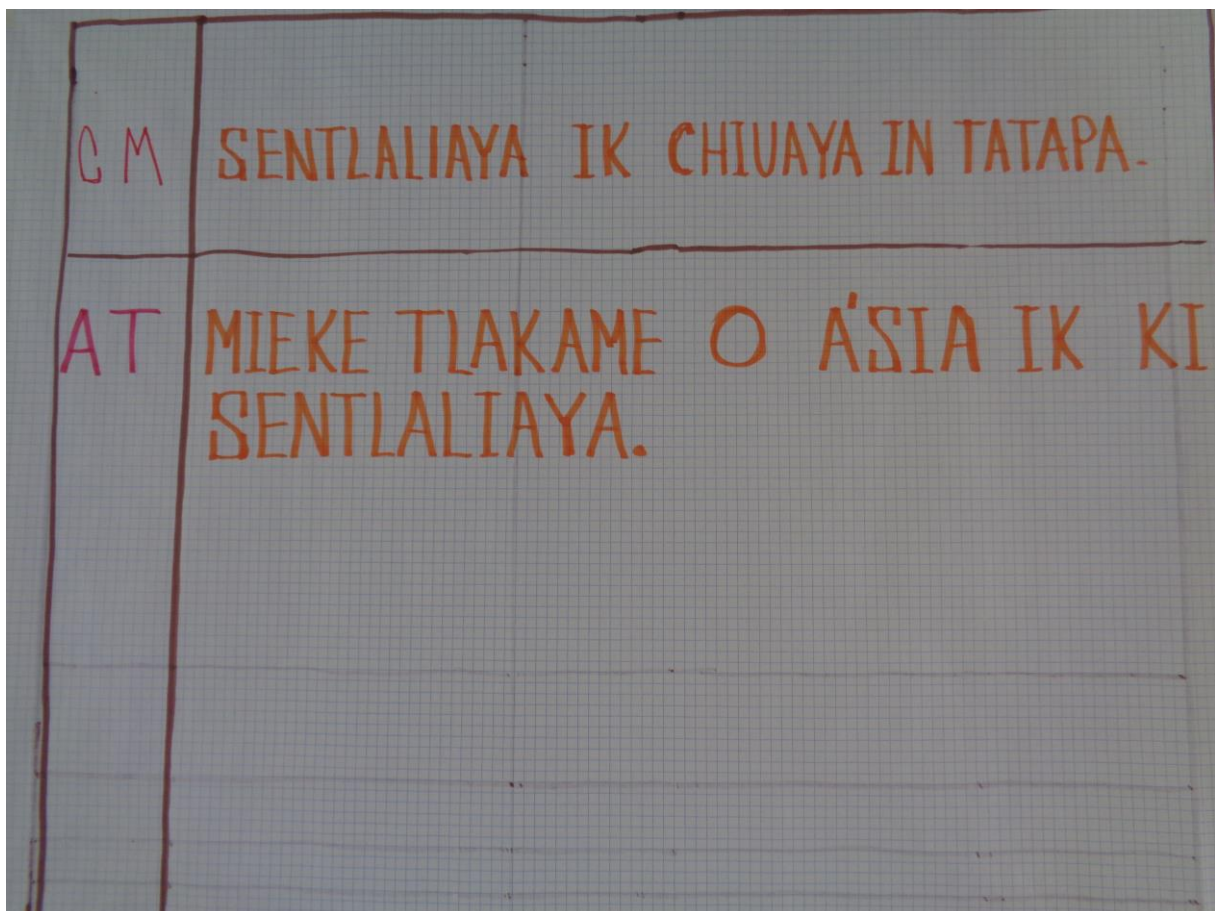 CM SENTLALIAYA IK CHIUAYA IN TATAPA.
AT MIEKE TLAKAME O ÁSIA IK KI
SENTLALIAYA.